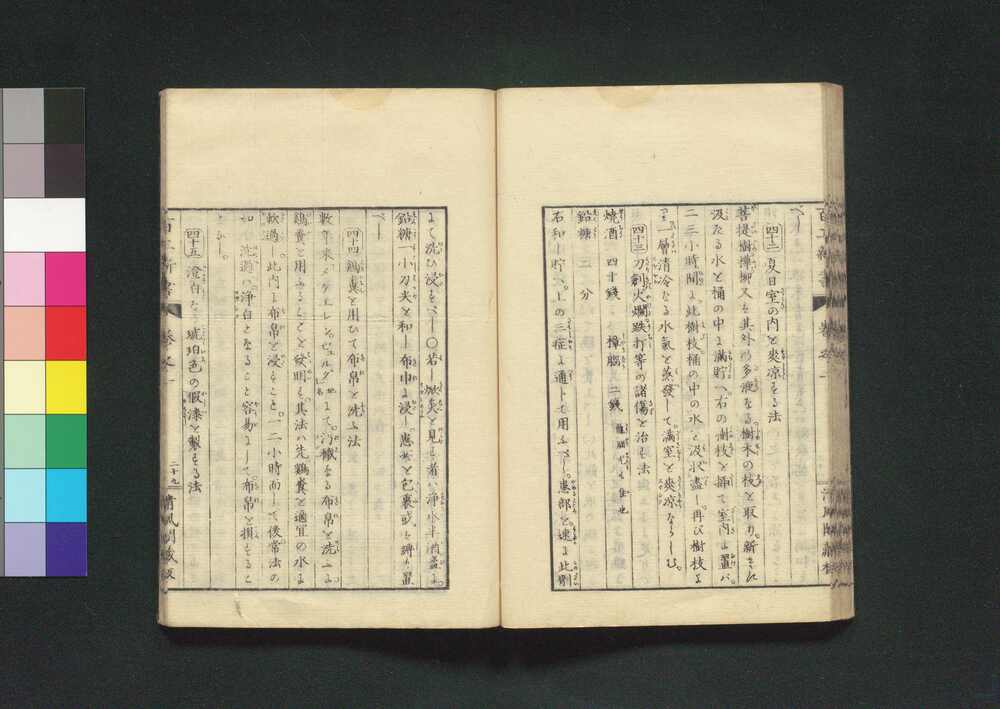 べし
四十二 夏日室の内を爽凉する法
菩提樹檉柳又ハ其外の多液なる樹木の枝を取り新きれ
汲たる水を桶の中に満貯へ右の樹枝を挿て室内に置バ
二三小時間に此樹枝桶の中の水を汲収盡し再び樹枝よ
り一層清冷なる水氣を蒸發して満室を爽凉ならしむ
四十三 刀剣火爛跌打等の諸傷を治する法
焼酒 四十錢 樟脳 二錢
鉛糖 二分
右和し貯へ上の三症に通じて用ふべし患部を速に此劑
にて洗ひ浸すべし〇若し焮𤍠を見る者ハ浄水半酒盞に
鉛糖一小刀尖を和し布巾に浸し患処を包裹或ハ縛り置
べし
四十四 鶏糞を用ひて布帛を洗ふ法
輓年来メクエレンビュルグにて汚穢なる布帛を洗ふに
鶏糞を用ふることを發明す其法ハ先鶏糞を適宜の水に
軟過し此内に布帛を浸すこと一二小時而して後常法の
如く洗過バ浄白となること容易にして布帛を損すること
なし
四十五 澄白なる琥珀色の假漆を製する法
百工新書 巻之一 二十九